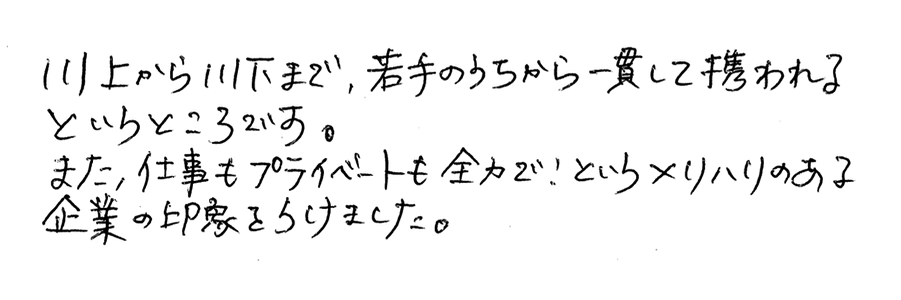 川上から川下まで、若手のうちから一貫して携われる
というところです。
また、仕事もプライベートも全力で！というメリハリのある
企業の印象をうけました。